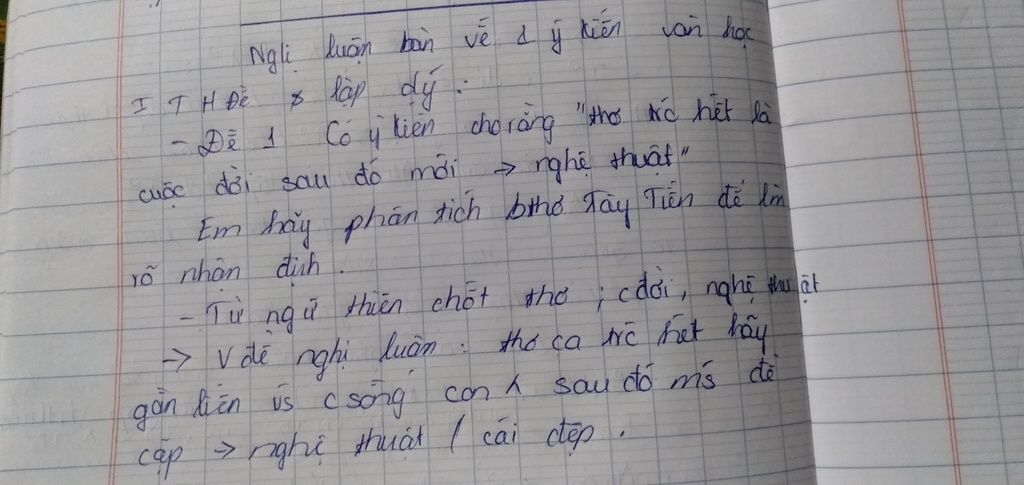 Nglị luận bàn về 1 ý kiến văn học
I T H Đề & lập dý :
- Đề 1 Có ý kiến cho rằng "thơ trc hết là
cuộc đời sau đó mới → nghệ thuật"
Em hãy phân tích bthơ Tây Tiến để làm
rõ nhận định .
- Từ ngữ then chốt thơ ; cđời , nghệ thuật
→ V đề nghị luận : thơ ca trc hết hãy
gắn liền vs c sống con λ sau đó ms đề
cập → nghệ thuật / cái đẹp .